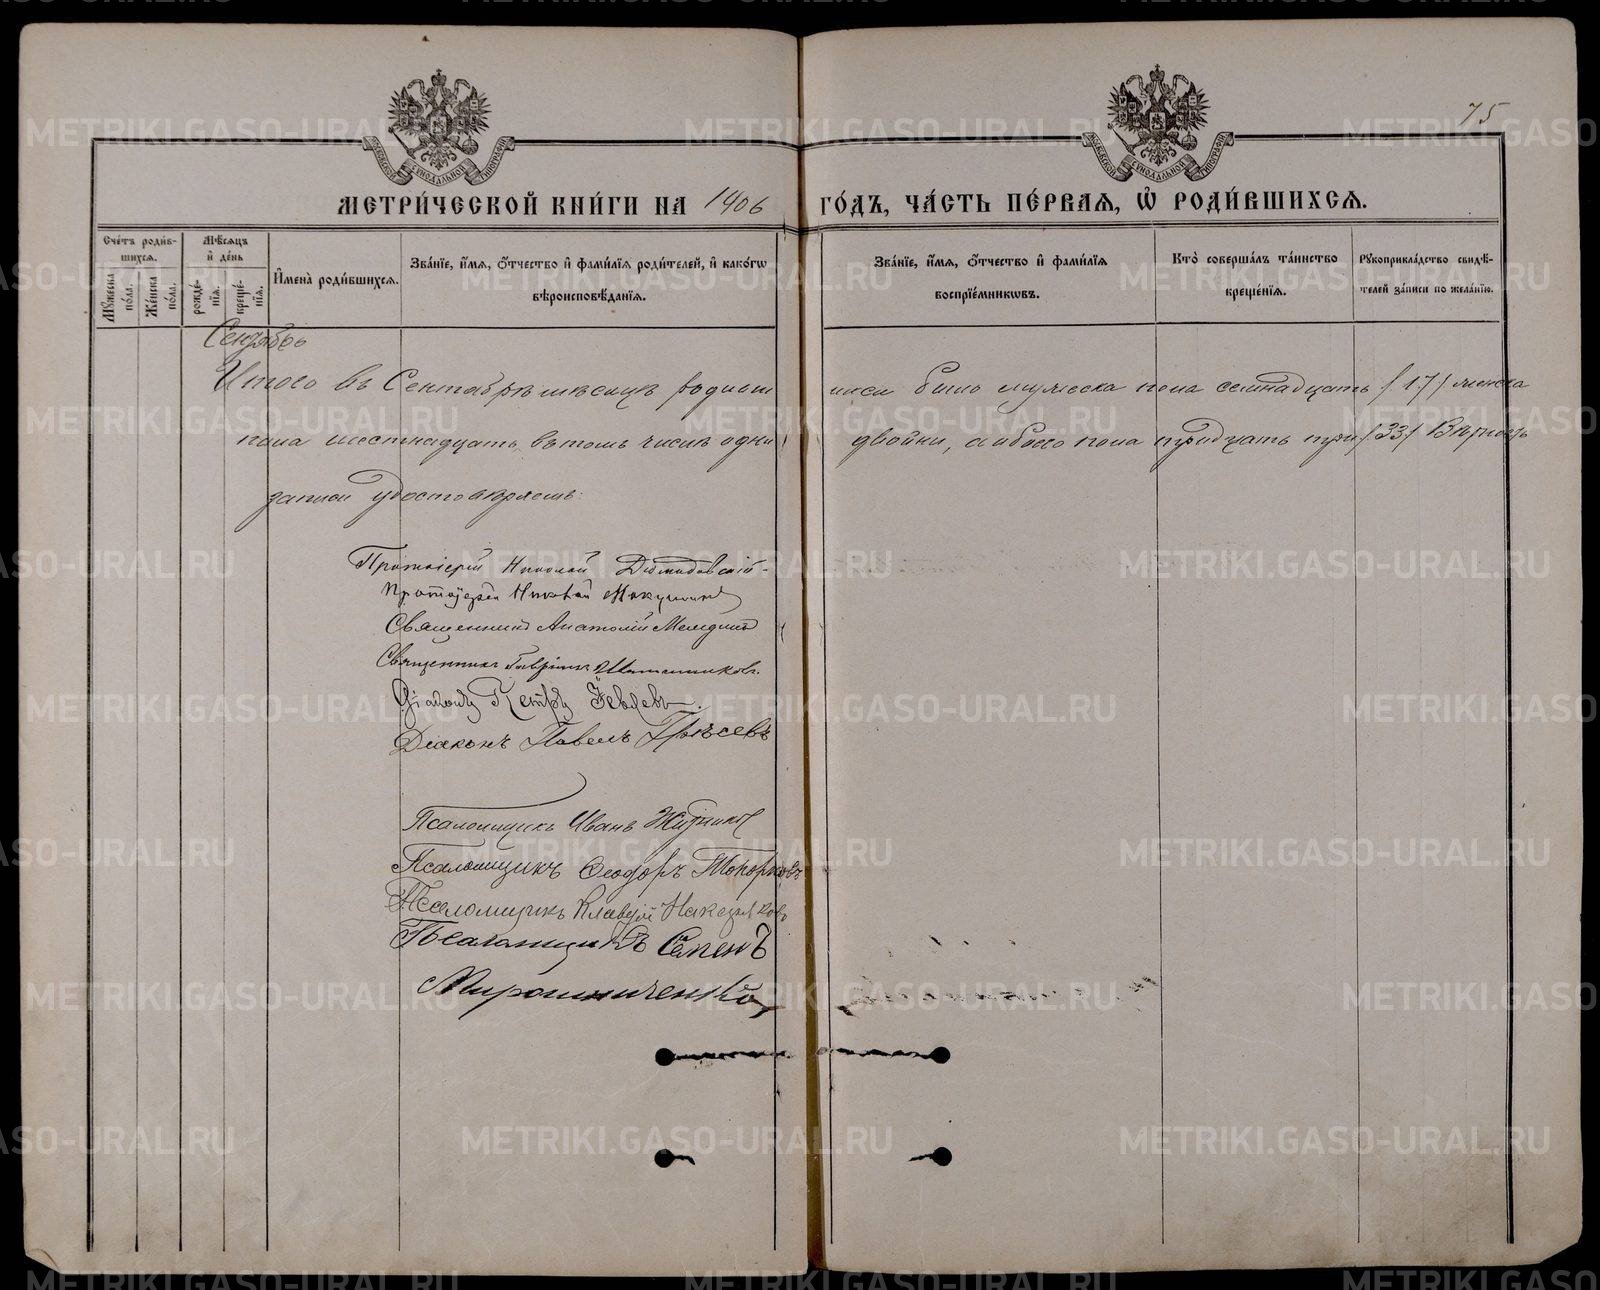 75
МЕТРИ́ЧЕСКОЙ КНИ́ГИ НА 1906 ГО́ДЪ, ЧА́СТЬ ПЕ́РВАЯ, Ѡ РОДИ́ВШИХСЯ.
Сче́тъ роди́вшихся.
Му́жеска по́ла.
Же́нска по́ла.
Мѣ́сяцъ и де́нь
рожде́нїя.
креще́нїя.
Имена̀ роди́вшихся.
Зва́нїе, и́мя, о́тчество и фами́лїя роди́телей, и како́гѡ вѣроисповѣ́данїя.
Зва́нїе, и́мя, о́тчество и фами́лїя воспрїе́мниковъ.
Кто̀ соверша́лъ та́инство креще́нїя.
Рукоприкла́дство свидѣ́телей за́писи по жела́нїю.
Сентябрь
Итого въ Сентябрѣ мѣсяцѣ родившихся было мужеска пола семнадцать (17) женска
пола шестнадцать, въ томъ числѣ одни двойни, а обоего пола тридцать три (33) Вѣрность
записи удостовѣряемъ:
Протоіерей Николай Диомидовскій
Протоіерей Николай
Священникъ Анатолій
Священникъ Гавріилъ
Діаконъ Петръ
Діаконъ Павелъ
Псаломщикъ Иванъ
Псаломщикъ Ѳеодоръ Топорковъ
Псаломщикъ Клавдій
Псаломщикъ Семенъ
Мирошниченко
METRIKI.GASO-URAL.RU